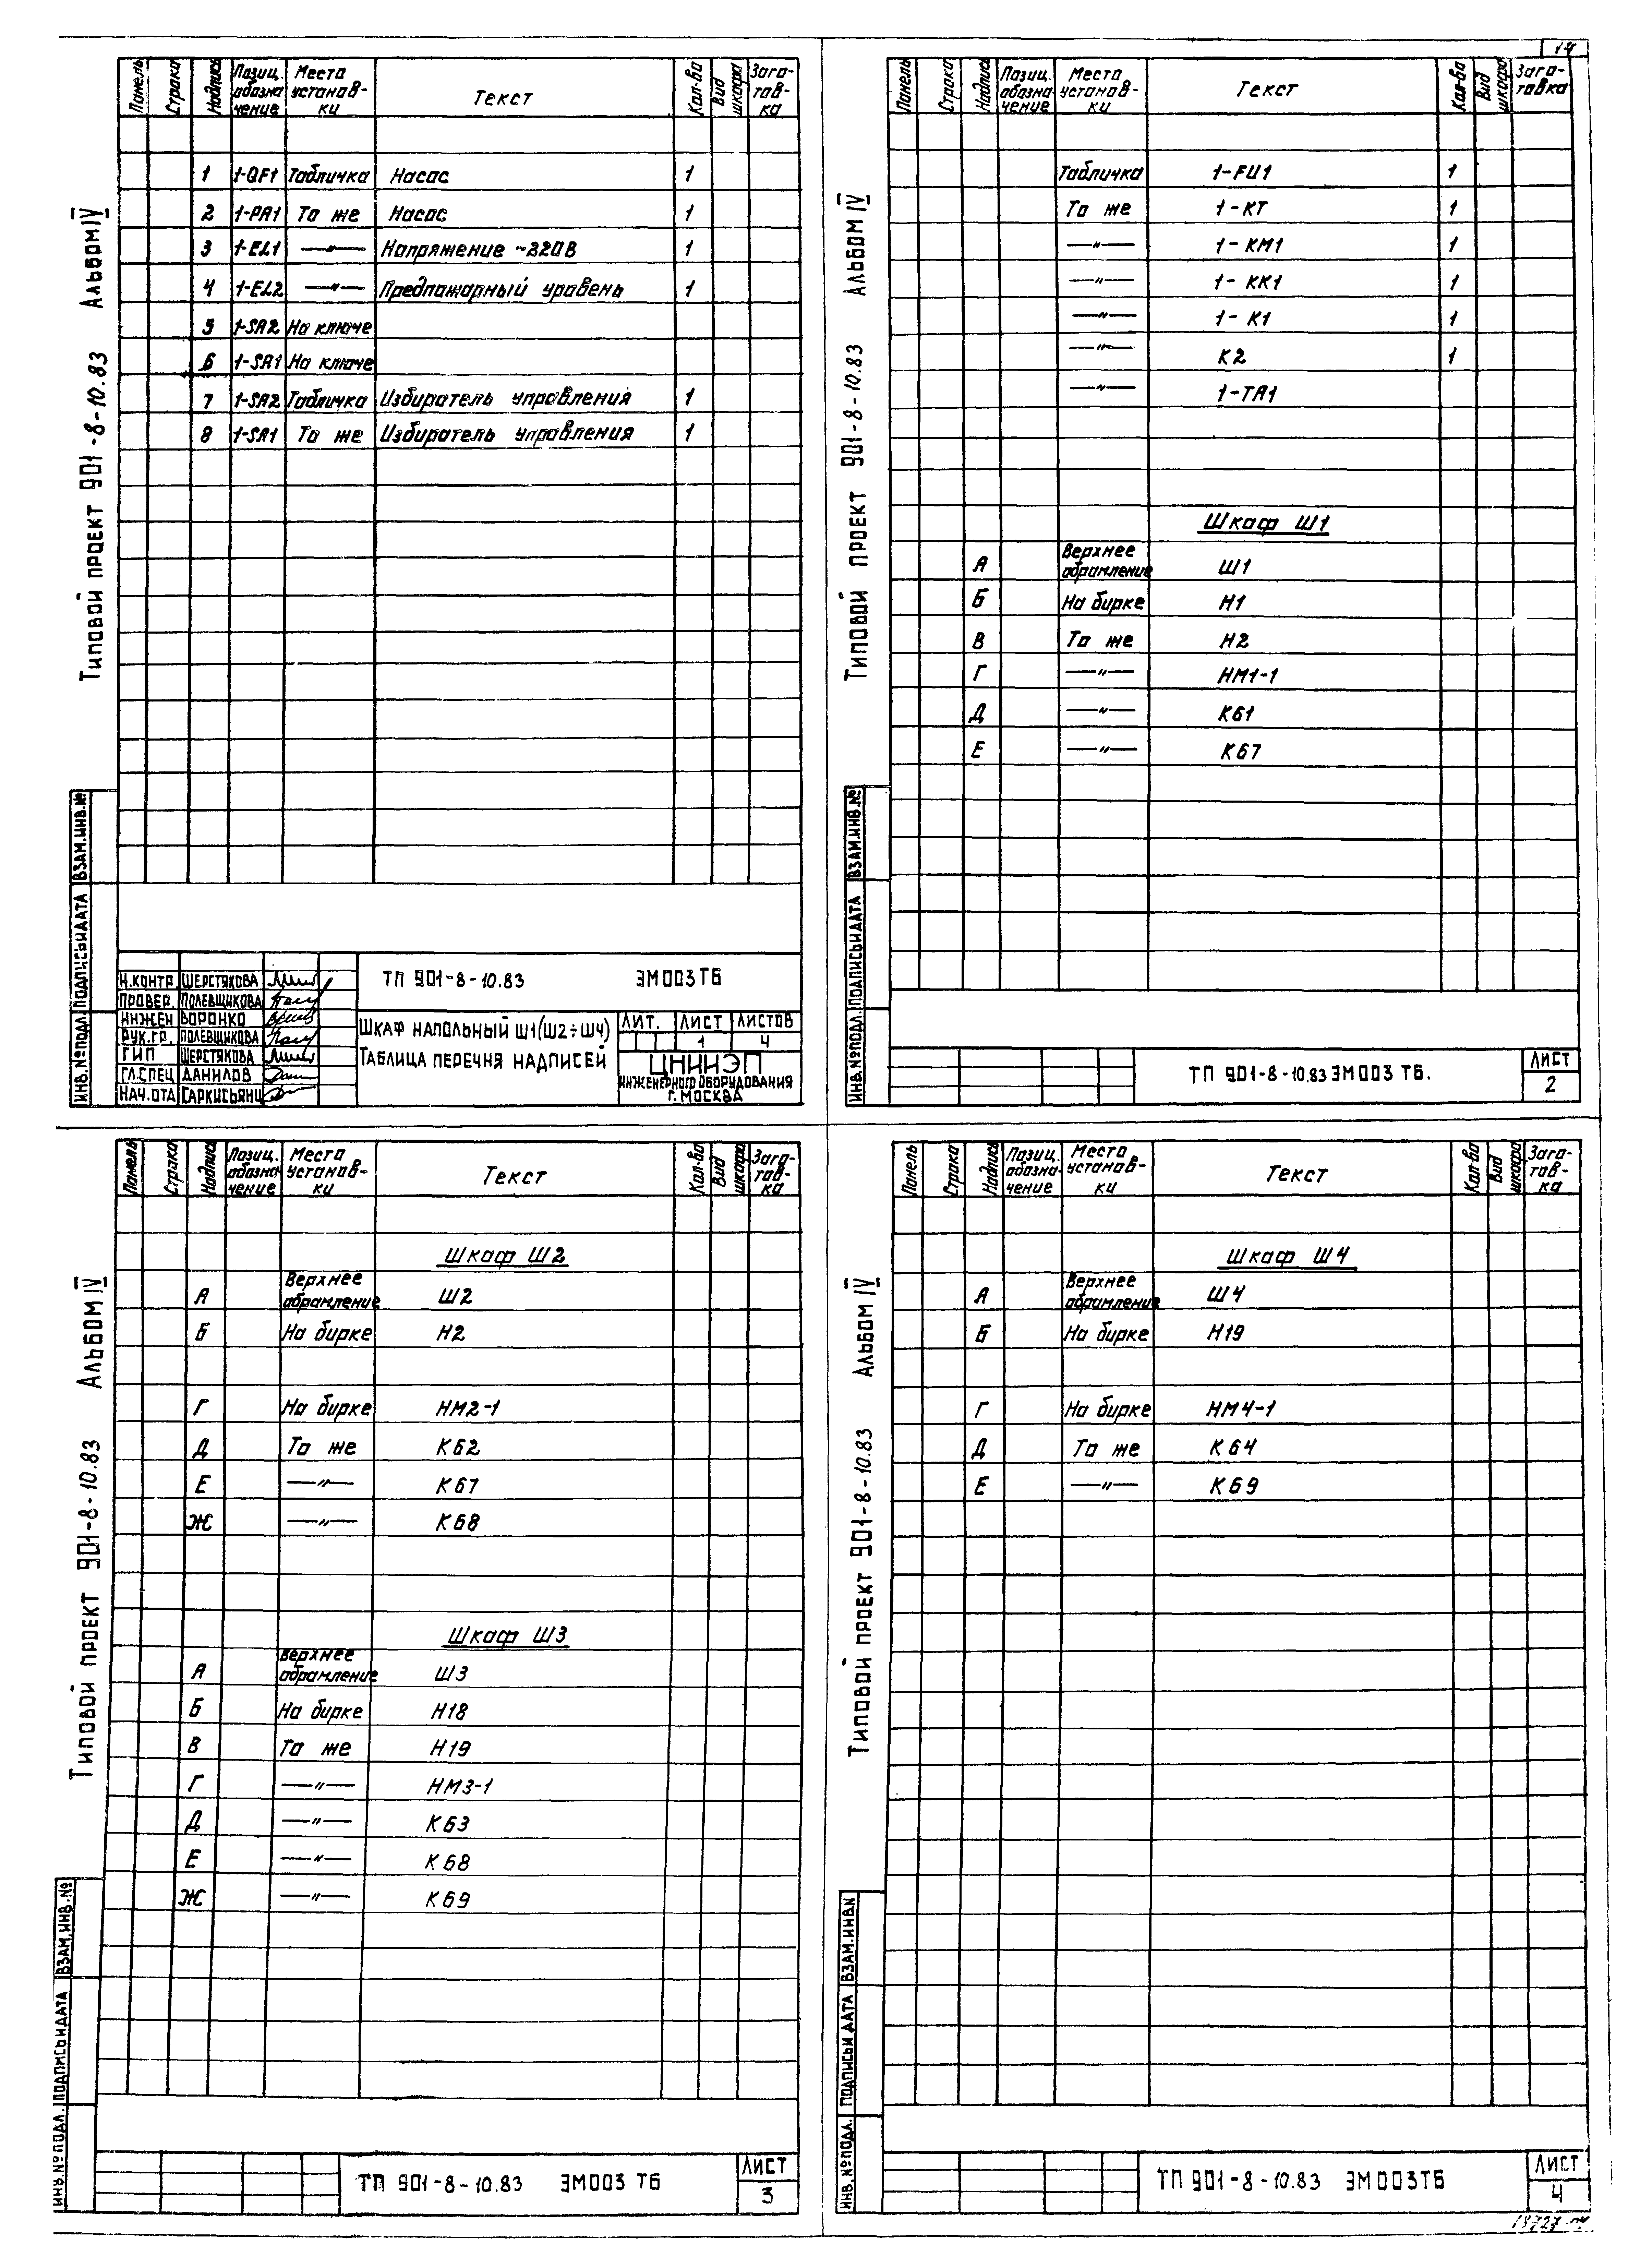 14
Альбом IV
Типовой проект 901-8-10.83
Панель Строка Надпись Позиц. обозначение Место установ-ки Текст Кол-во Вид шкафа Заго-тов-ка
1 1-QF1 Табличка Насос 1
2 1-PA1 То же Насос 1
3 1-EL1 —"— Напряжение ~220В 1
4 1-EL2 —"— Предпожарный уровень 1
5 1-SA2 На ключе
6 1-SA1 На ключе
7 1-SA2 Табличка Избиратель управления 1
8 1-SA1 То же Избиратель управления 1
ВЗАМ.ИНВ.№
ПОДПИСЬ И ДАТА
ИНВ.№ ПОДЛ.
Н.КОНТР. ШЕРСТЯКОВА
ПРОВЕР. ПОЛЕВЩИКОВА
ИНЖЕН ВОРОНКО
РУК.ГР. ПОЛЕВЩИКОВА
ГИП ШЕРСТЯКОВА
ГЛ.СПЕЦ ДАНИЛОВ
НАЧ.ОТА ГАРКИСЬЯНЦ
ТП 901-8-10.83 ЭМ003ТБ
ШКАФ НАПОЛЬНЫЙ Ш1(Ш2÷Ш4)
ТАБЛИЦА ПЕРЕЧНЯ НАДПИСЕЙ
ЛИТ. ЛИСТ ЛИСТОВ
1 4
ЦНИИЭП
ИНЖЕНЕРНОГО ОБОРУДОВАНИЯ
Г. МОСКВА
Альбом IV
Типовой проект 901-8-10.83
Панель Строка Надпись Позиц. обозначение Место установ-ки Текст Кол-во Вид шкафа Заго-товка
Табличка 1-FU1 1
То же 1-KT 1
—"— 1-KM1 1
—"— 1-KK1 1
—"— 1-K1 1
—"— K2 1
—"— 1-TA1
Шкаф Ш1
А Верхнее обрамление Ш1
Б На бирке Н1
В То же Н2
Г —"— НМ1-1
Д —"— К61
Е —"— К67
ВЗАМ.ИНВ.№
ПОДПИСЬ И ДАТА
ИНВ.№ ПОДЛ.
ТП 901-8-10.83 ЭМ003 ТБ.
ЛИСТ
2
Альбом IV
Типовой проект 901-8-10.83
Панель Строка Надпись Позиц. обозначение Место установ-ки Текст Кол-во Вид шкафа Заго-тов-ка
Шкаф Ш2
А Верхнее обрамление Ш2
Б На бирке Н2
Г На бирке НМ2-1
Д То же К62
Е —"— К67
Ж —"— К68
Шкаф Ш3
А Верхнее обрамление Ш3
Б На бирке Н18
В То же Н19
Г —"— НМ3-1
Д —"— К63
Е —"— К68
Ж —"— К69
ВЗАМ.ИНВ.№
ПОДПИСЬ И ДАТА
ИНВ.№ ПОДЛ.
ТП 901-8-10.83 ЭМ003 ТБ
ЛИСТ
3
Альбом IV
Типовой проект 901-8-10.83
Панель Строка Надпись Позиц. обозна-чение Место установ-ки Текст Кол-во Вид шкафа Заго-тов-ка
Шкаф Ш4
А Верхнее обрамление Ш4
Б На бирке Н19
Г На бирке НМ4-1
Д То же К64
Е —"— К69
ВЗАМ.ИНВ.N
ПОДПИСЬ И ДАТА
ИНВ.№ ПОДЛ.
ТП 901-8-10.83 ЭМ003ТБ
ЛИСТ
4
18727-04